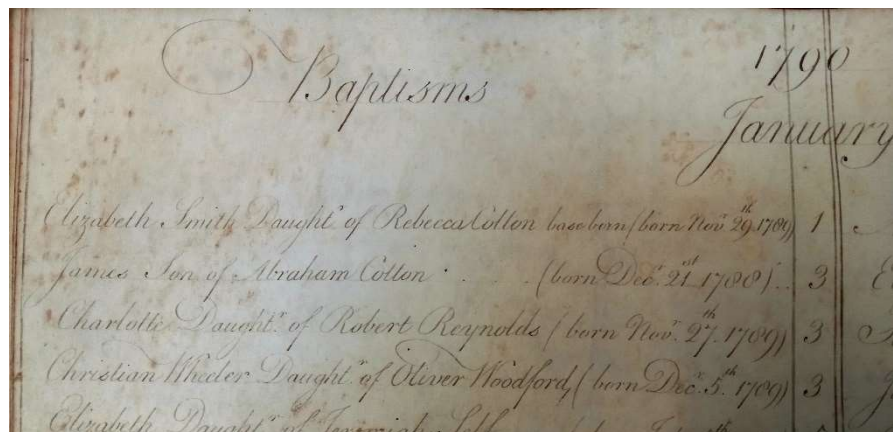 Baptisms 1790
January
Elizabeth Smith Daught.r of Rebecca Cotton base born (born Nov.r 29th 1789) 1
James Son of Abraham Cotton . . . (born Dec.r 21st 1788) .. 3
Charlotte Daught.r of Robert Reynolds (born Nov.r 27th 1789) 3
Christian Wheeler Daught.r of Oliver Woodford, (born Dec.r 5th 1789) 3
Elizabeth Daught.r of Jeremiah